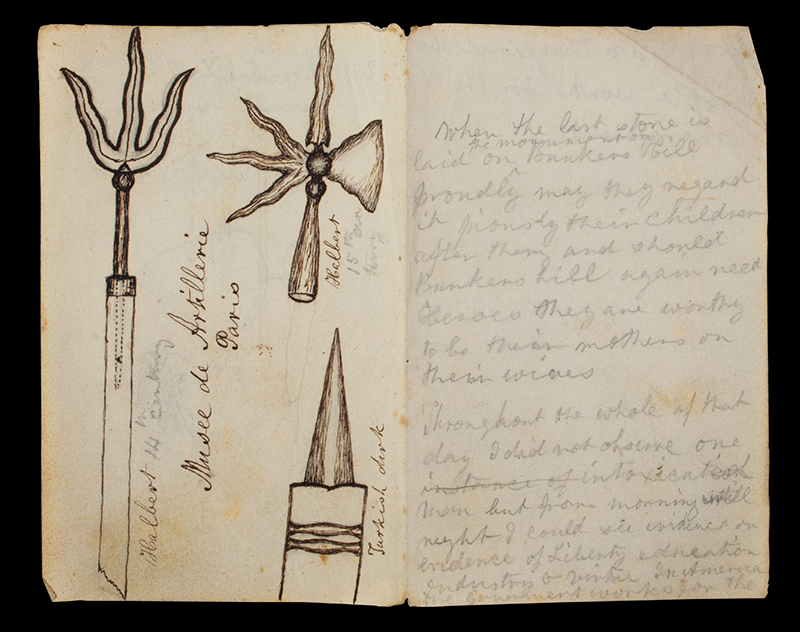 Halbert 14th Century
Musee de Artillerie
Paris
Halbert
15th Cen
tury
Turkish dirk
When the last stone is
the monument on
laid on Bunkers Hill
proudly may they regard
it piously their children
after them and should
Bunkers hill again need
Heroes they are worthy
to be their mothers or
their wives
Throughout the whole of that
day I did not observe one
instance of intoxication
man but from morning till
night I could see evidence on
evidence of Liberty education
Industry & virtue In America
the Government works for the